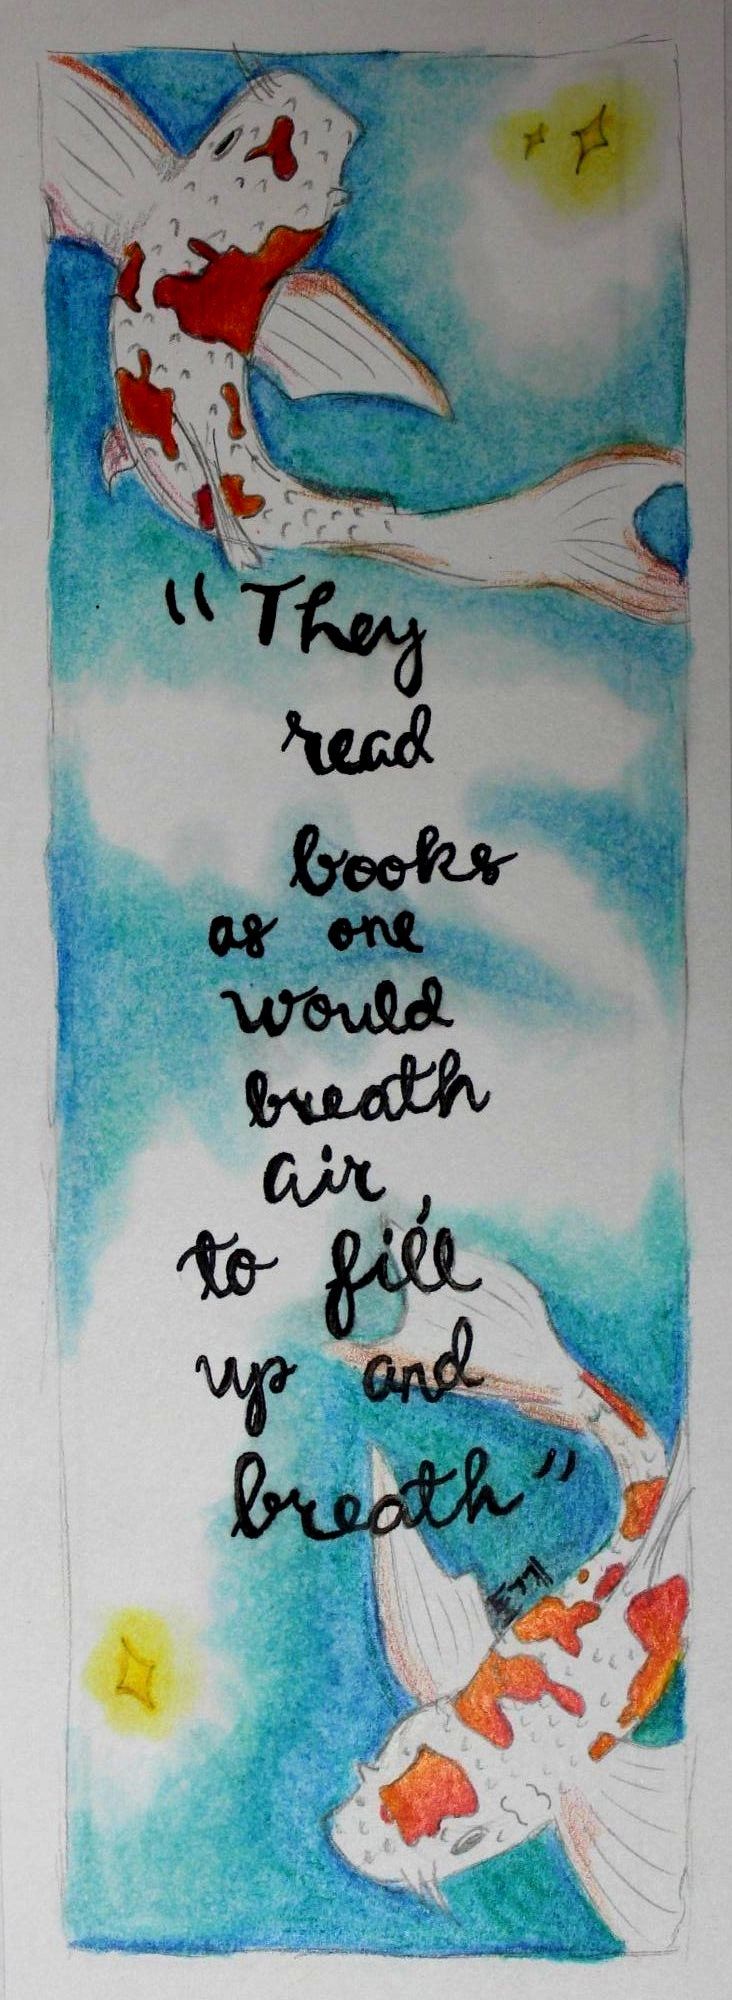 "They
read
books
as one
would
breath
air,
to fill
up and
breath"